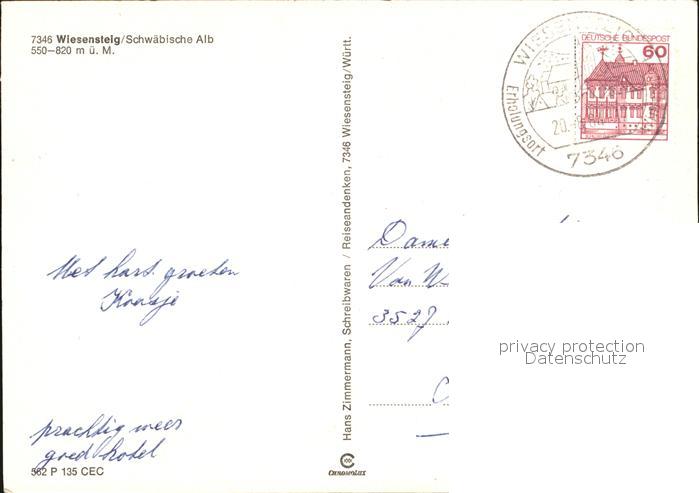 7346 Wiesensteig/Schwäbische Alb
550–820 m ü. M.
WIESENSTEIG
DEUTSCHE BUNDESPOST
60
Erholungsort
20.
7346
Hans Zimmermann, Schreibwaren / Reiseandenken, 7346 Wiesensteig/Württ.
Met hart. groeten
Dame
Van
3527
privacy protection
Datenschutz
prachtig weer
goed hotel
562 P 135 CEC
CHROMOLUX